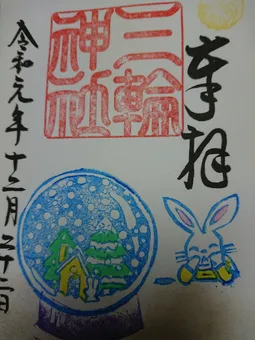 奉拝
三輪
神社
令和元年十二月二十二日